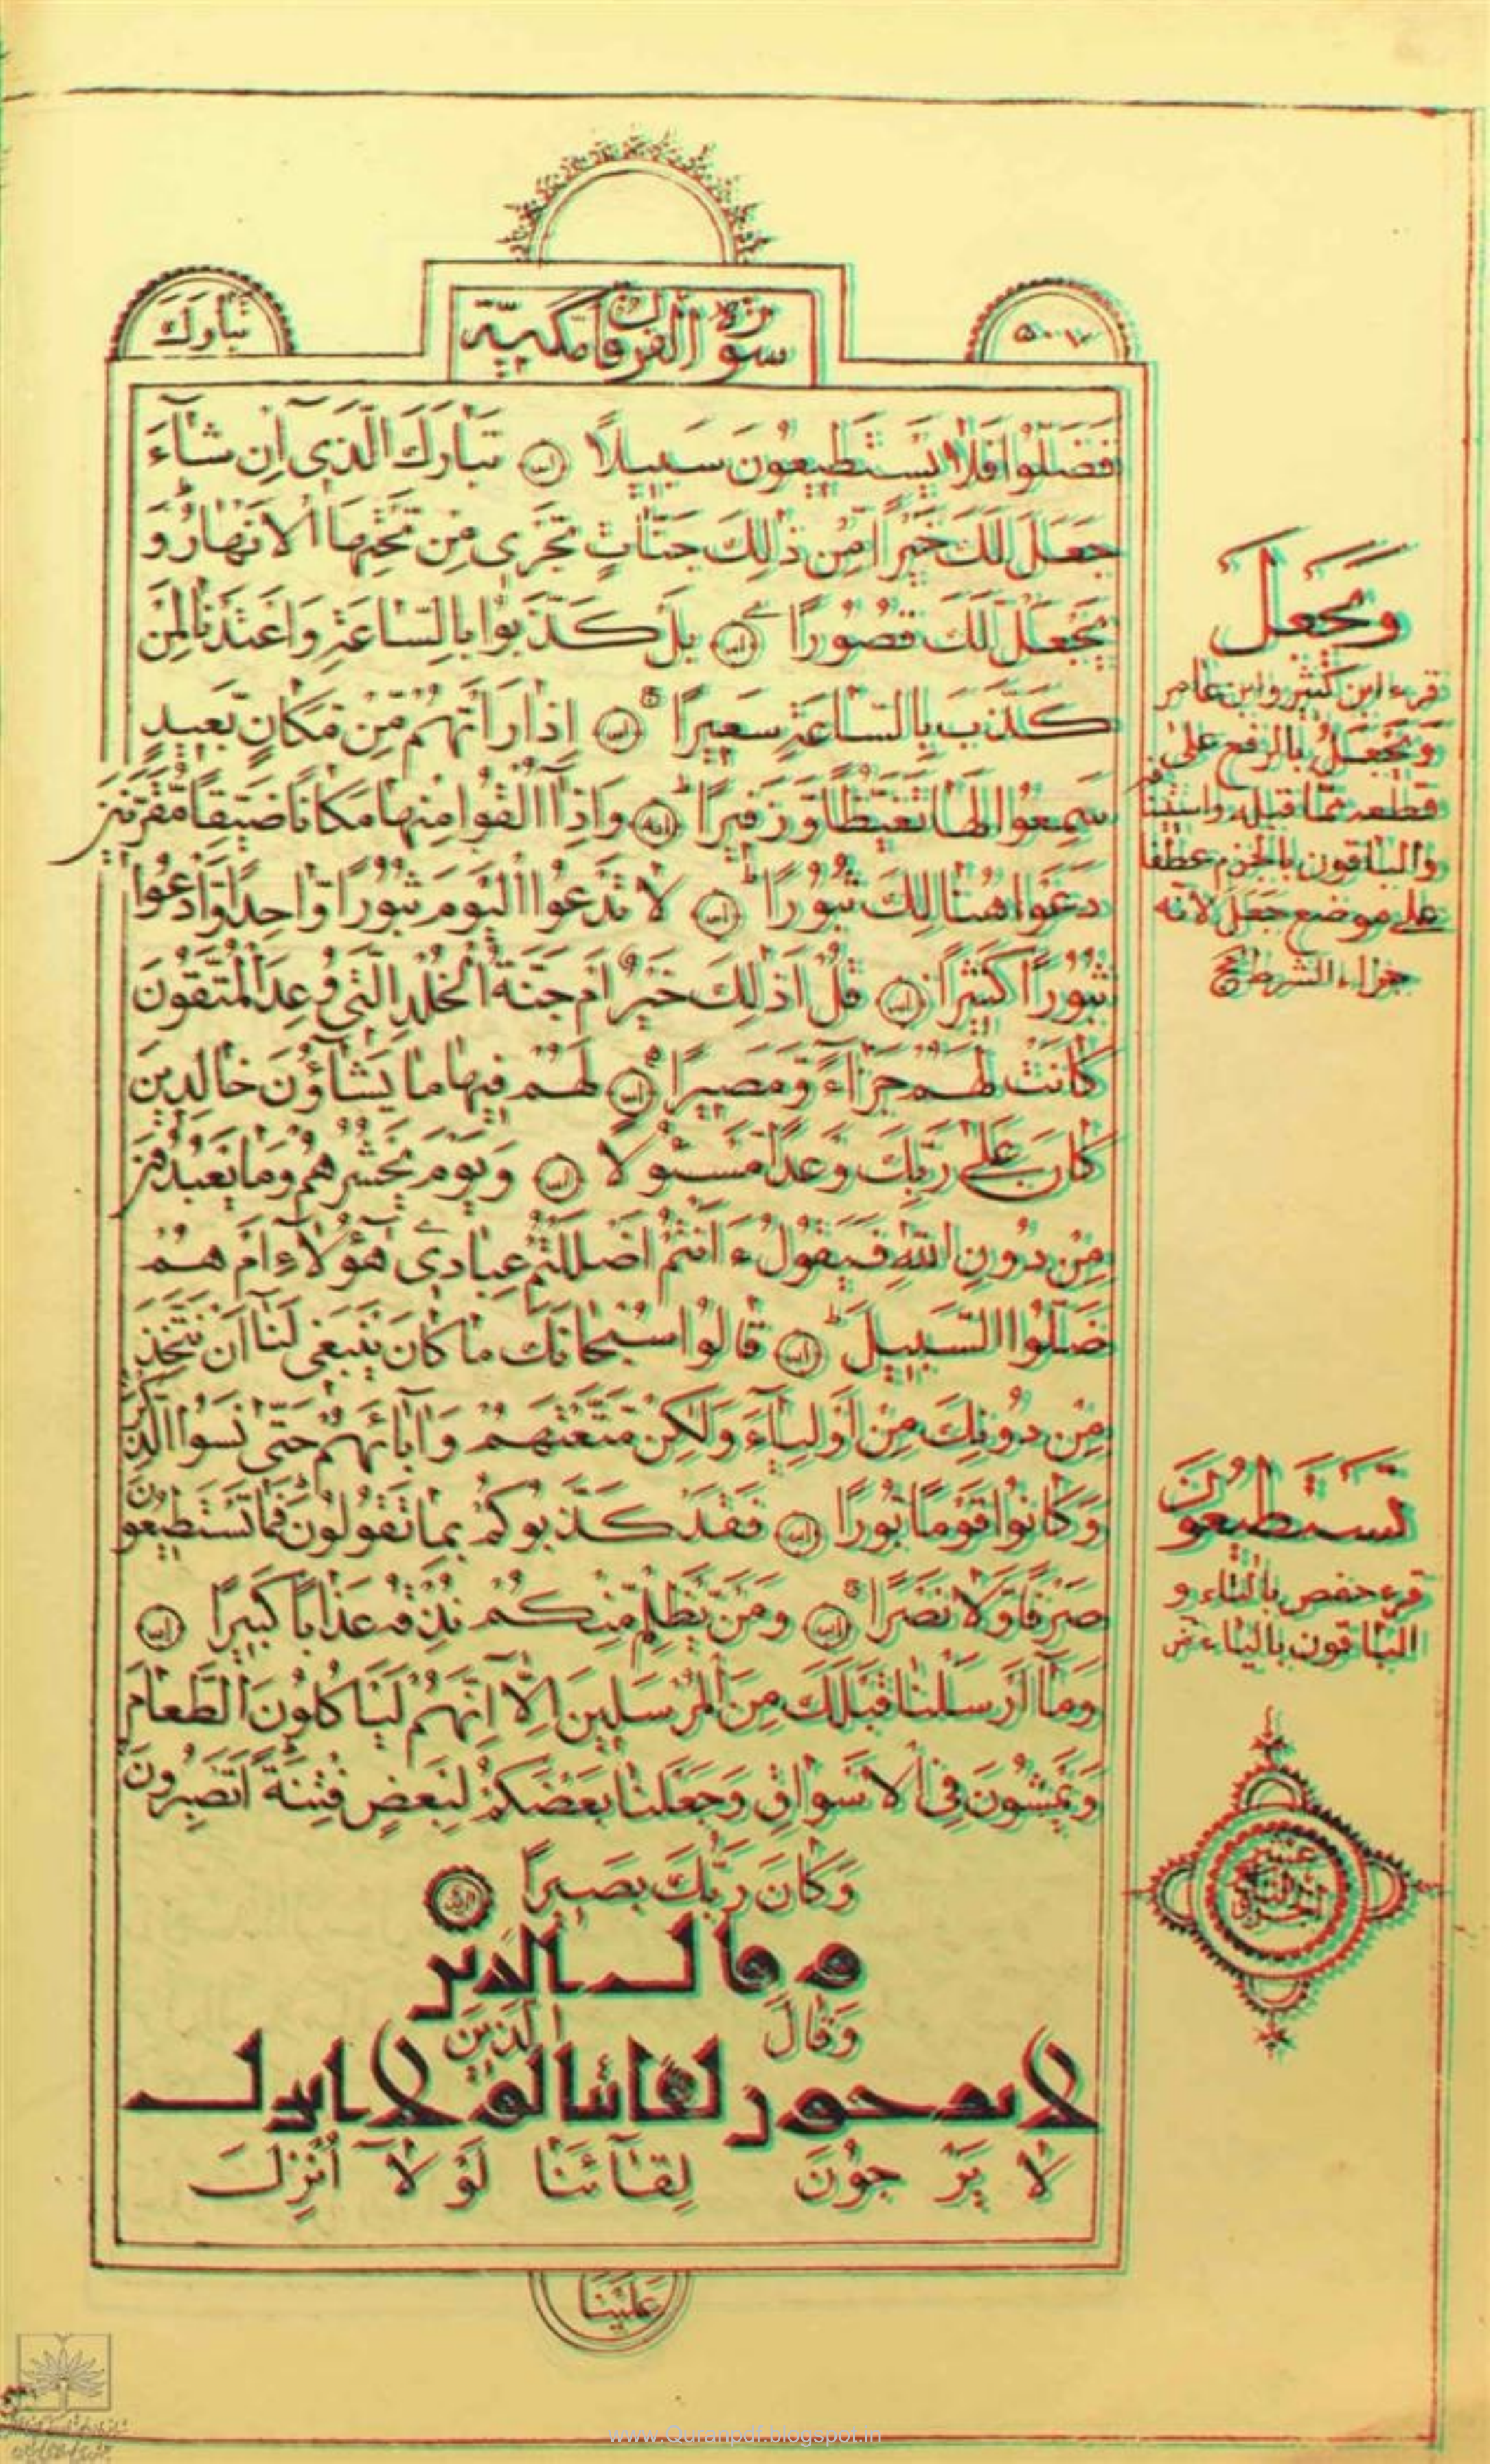 تبارك
سورة الفرقان مكية
فَضَلّوُا فَلا يَسْتَطيعُونَ سَبيلاً تَبارَكَ الَّذى اِنْ شآءَ
جَعَلَ لَكَ خَيْراً مِنْ ذالِكَ جَنّاتٍ تَجْرى مِنْ تَحْتِهَا الْاَنْهارُ وَ
يَجْعَلْ لَكَ قُصُوراً بَلْ كَذَّبُوا بِالسّاعَةِ وَاَعْتَدْنا لِمَنْ
كَذَّبَ بِالسّاعَةِ سَعيراً اِذا رَاَتْهُمْ مِنْ مَكانٍ بَعيدٍ
سَمِعُوا لَها تَغَيُّظاً وَ زَفيراً وَاِذآ اُلْقُوا مِنْها مَكاناً ضَيِّقاً مُقَرَّنينَ
دَعَوْا هُنالِكَ ثُبُوراً لا تَدْعُوا الْيَوْمَ ثُبُوراً واحِداً وَادْعُوا
ثُبُوراً كَثيراً قُلْ اَذالِكَ خَيْرٌ اَمْ جَنَّةُ الْخُلْدِ الَّتى وُعِدَ الْمُتَّقُونَ
كانَتْ لَهُمْ جَزآءً وَمَصيراً لَهُمْ فيها ما يَشآؤُنَ خالِدينَ
كانَ عَلى رَبِّكَ وَعْداً مَسْئُولاً وَيَوْمَ يَحْشُرُهُمْ وَما يَعْبُدُونَ
مِنْ دُونِ اللّهِ فَيَقُولُ ءَاَنْتُمْ اَضْلَلْتُمْ عِبادى هؤُلآءِ اَمْ هُمْ
ضَلُّوا السَّبيلَ قالُوا سُبْحانَكَ ما كانَ يَنْبَغى لَنآ اَنْ نَتَّخِذَ
مِنْ دُونِكَ مِنْ اَوْلِيآءَ وَلكِنْ مَتَّعْتَهُمْ وَآبآئَهُمْ حَتّى نَسُوا الذِّكْرَ
وَكانُوا قَوْماً بُوراً فَقَدْ كَذَّبُوكُمْ بِما تَقُولُونَ فَما تَسْتَطيعُونَ
صَرْفاً وَلا نَصْراً وَمَنْ يَظْلِمْ مِنْكُمْ نُذِقْهُ عَذاباً كَبيراً
وَمآ اَرْسَلْنا قَبْلَكَ مِنَ الْمُرْسَلينَ اِلّآ اِنَّهُمْ لَيَاْكُلُونَ الطَّعامَ
وَيَمْشُونَ فِى الْاَسْواقِ وَجَعَلْنا بَعْضَكُمْ لِبَعْضٍ فِتْنَةً اَتَصْبِرُونَ
وَكانَ رَبُّكَ بَصيراً
وقال الذين
وَقالَ الَّذينَ
لا يرجون لقائنا لولا انزل
لا يَرْجُونَ لِقآئَنا لَوْ لآ اُنْزِلَ
عَلَيْنا
وَيَجْعَلْ
قرء ابن كثير وابن عامر
وَيَجْعَلُ بالرفع على
قطعه عمّا قبله
والباقون بالجزم عطفا
على موضع جعل لانّه
جزاء الشرط
تَسْتَطيعُونَ
قرء حفص بالتاء و
الباقون بالياء
www.Quranpdf.blogspot.in